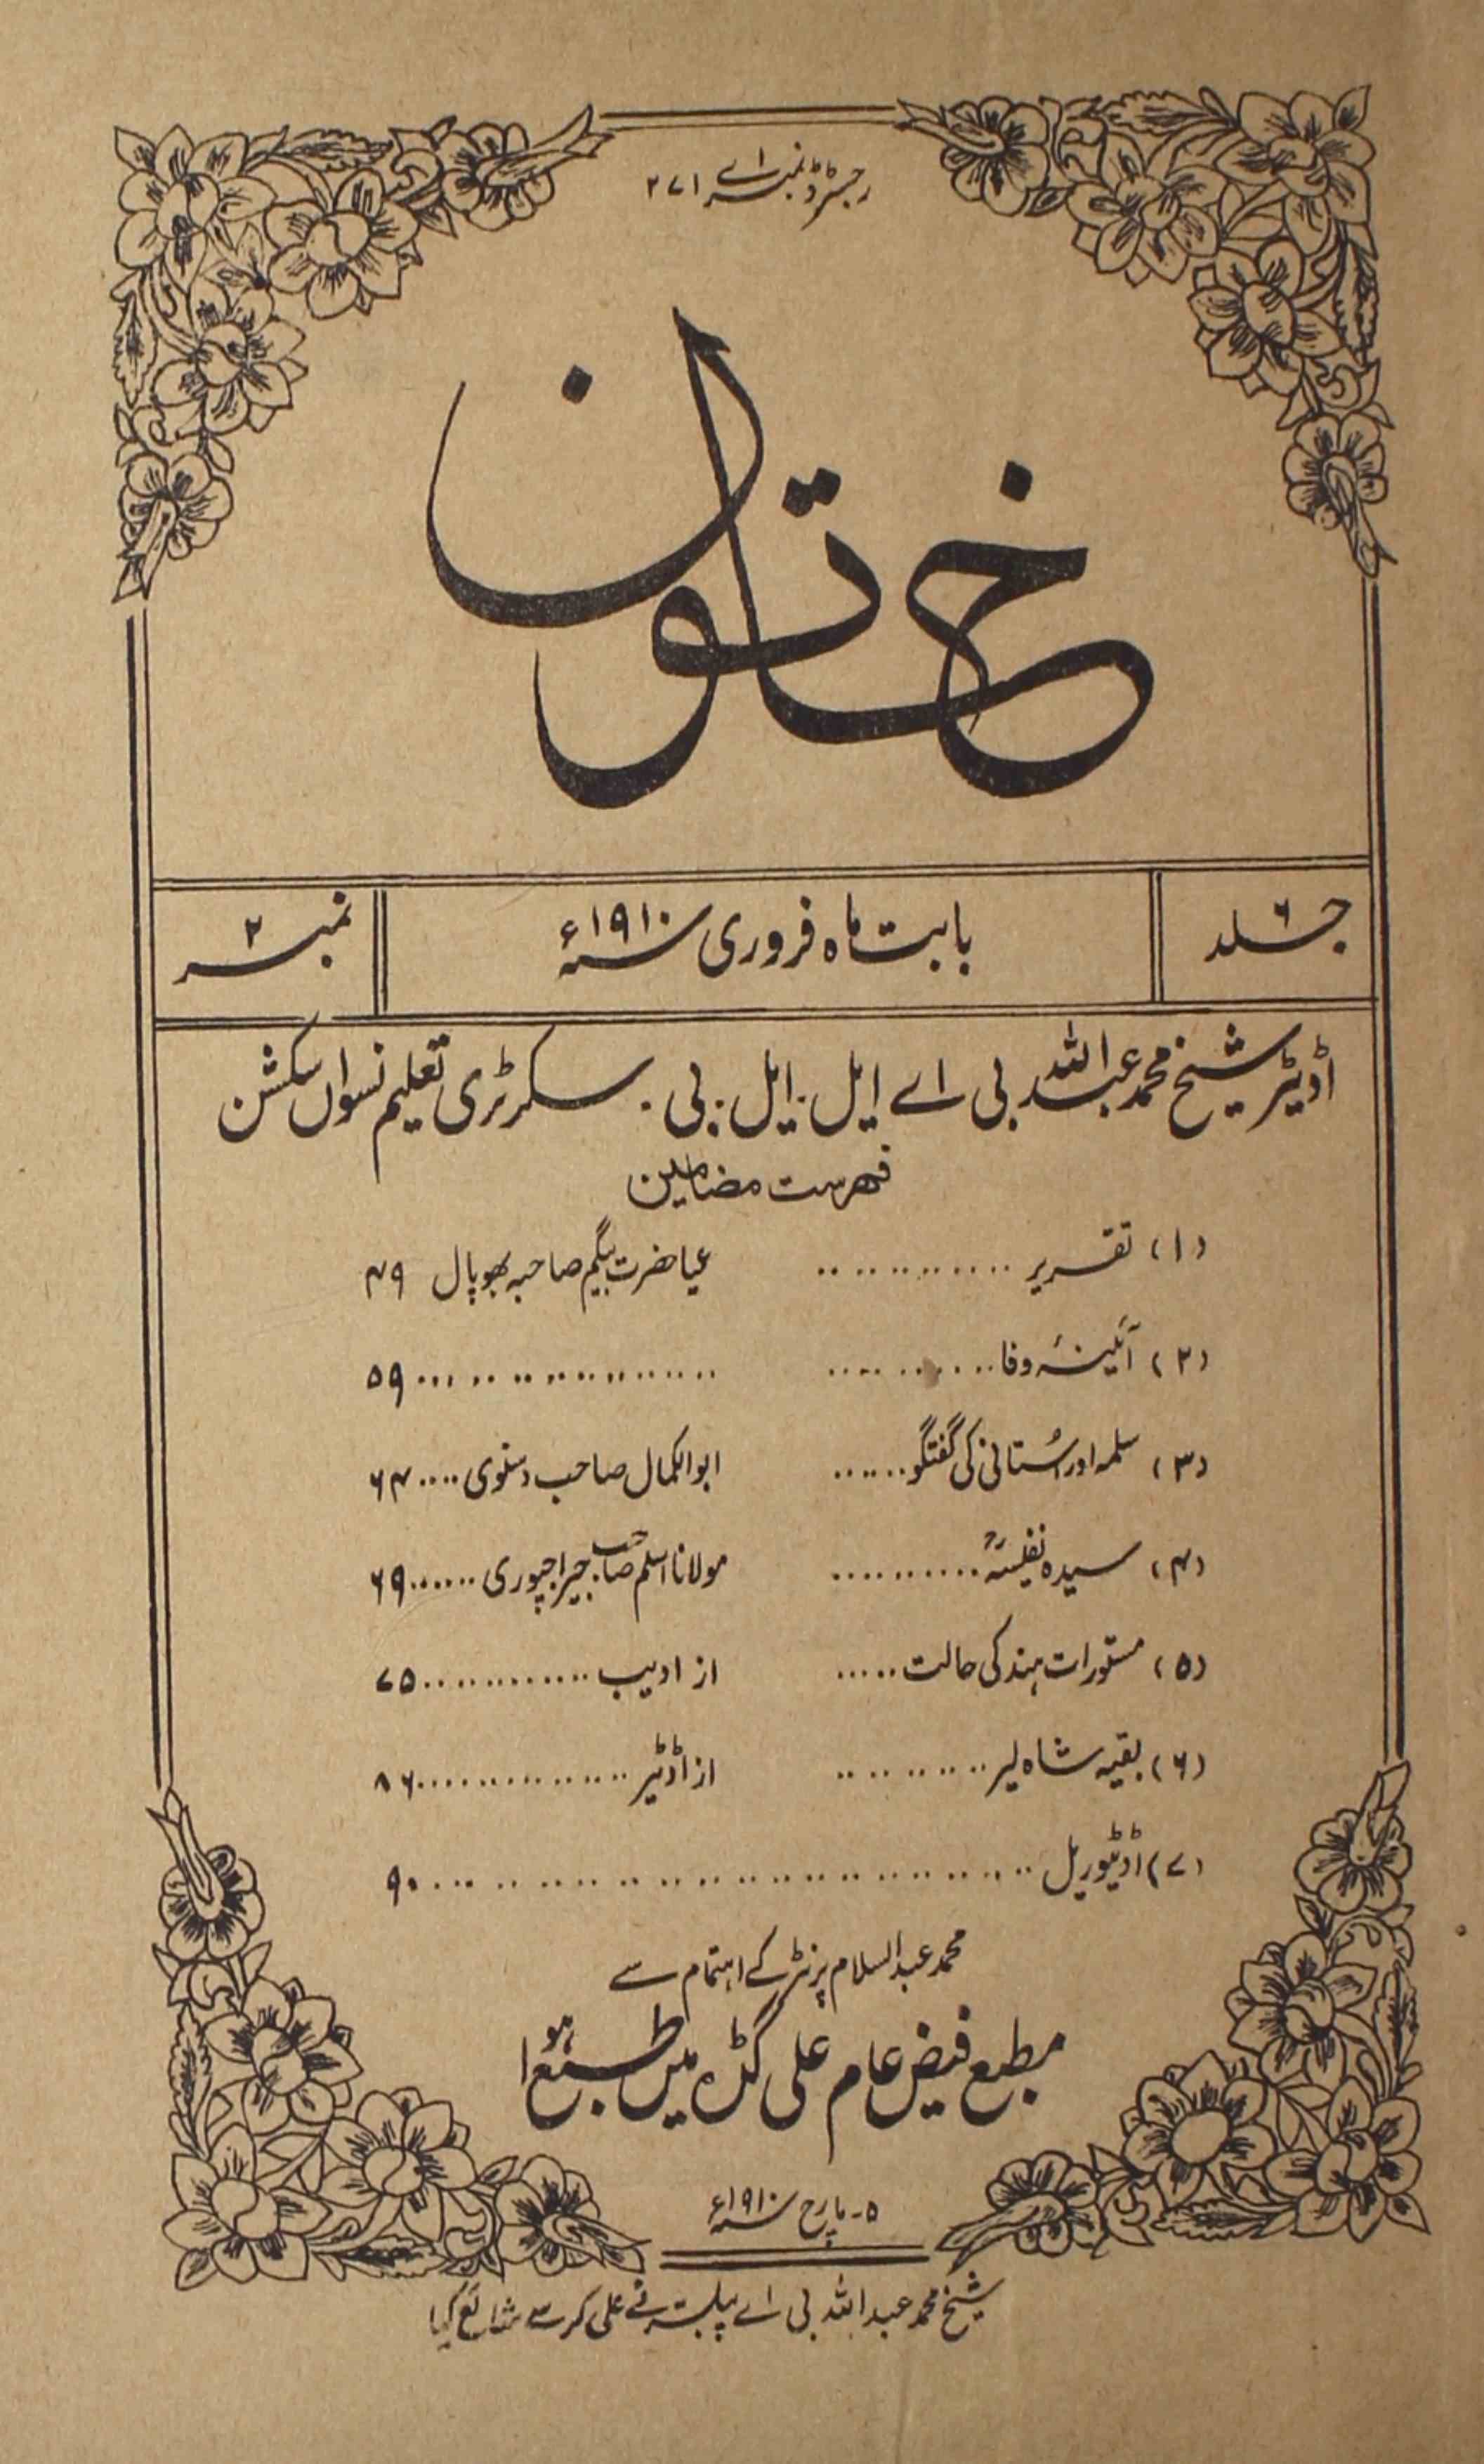 رجسٹرڈ نمبر اے ۲۷۱
خاتون
جلد ۶
بابت ماہ فروری سنہ ۱۹۱۰ء
نمبر ۲
اڈیٹر شیخ محمد عبداللہ بی اے ایل۔ ایل۔ بی۔ سکرٹری تعلیم نسواں سکشن
فہرست مضامین
(۱) تقریر ............ علیا حضرت بیگم صاحبہ بھوپال ۴۹
(۲) آئینۂ وفا ............ ۵۹
(۳) سلمہ اور اُستانی کی گفتگو ...... ابوالکمال صاحب دسنوی .... ۶۴
(۴) سیدہ نفیسہؓ .......... مولانا اسلم صاحب جیراجپوری ...... ۶۹
(۵) مستورات ہند کی حالت ..... از ادیب ............ ۷۵
(۶) بقیہ شاہ لیر .......... از اڈیٹر ............ ۸۶
(۷) اڈیٹوریل ............ ۹۰
محمد عبدالسلام پرنٹر کے اہتمام سے
مطبع فیض عام علی گڈہ میں طبع ہوا
۵۔ مارچ سنہ ۱۹۱۰ء
شیخ محمد عبداللہ بی اے پبلشر نے علی گڑھ سے شائع کیا